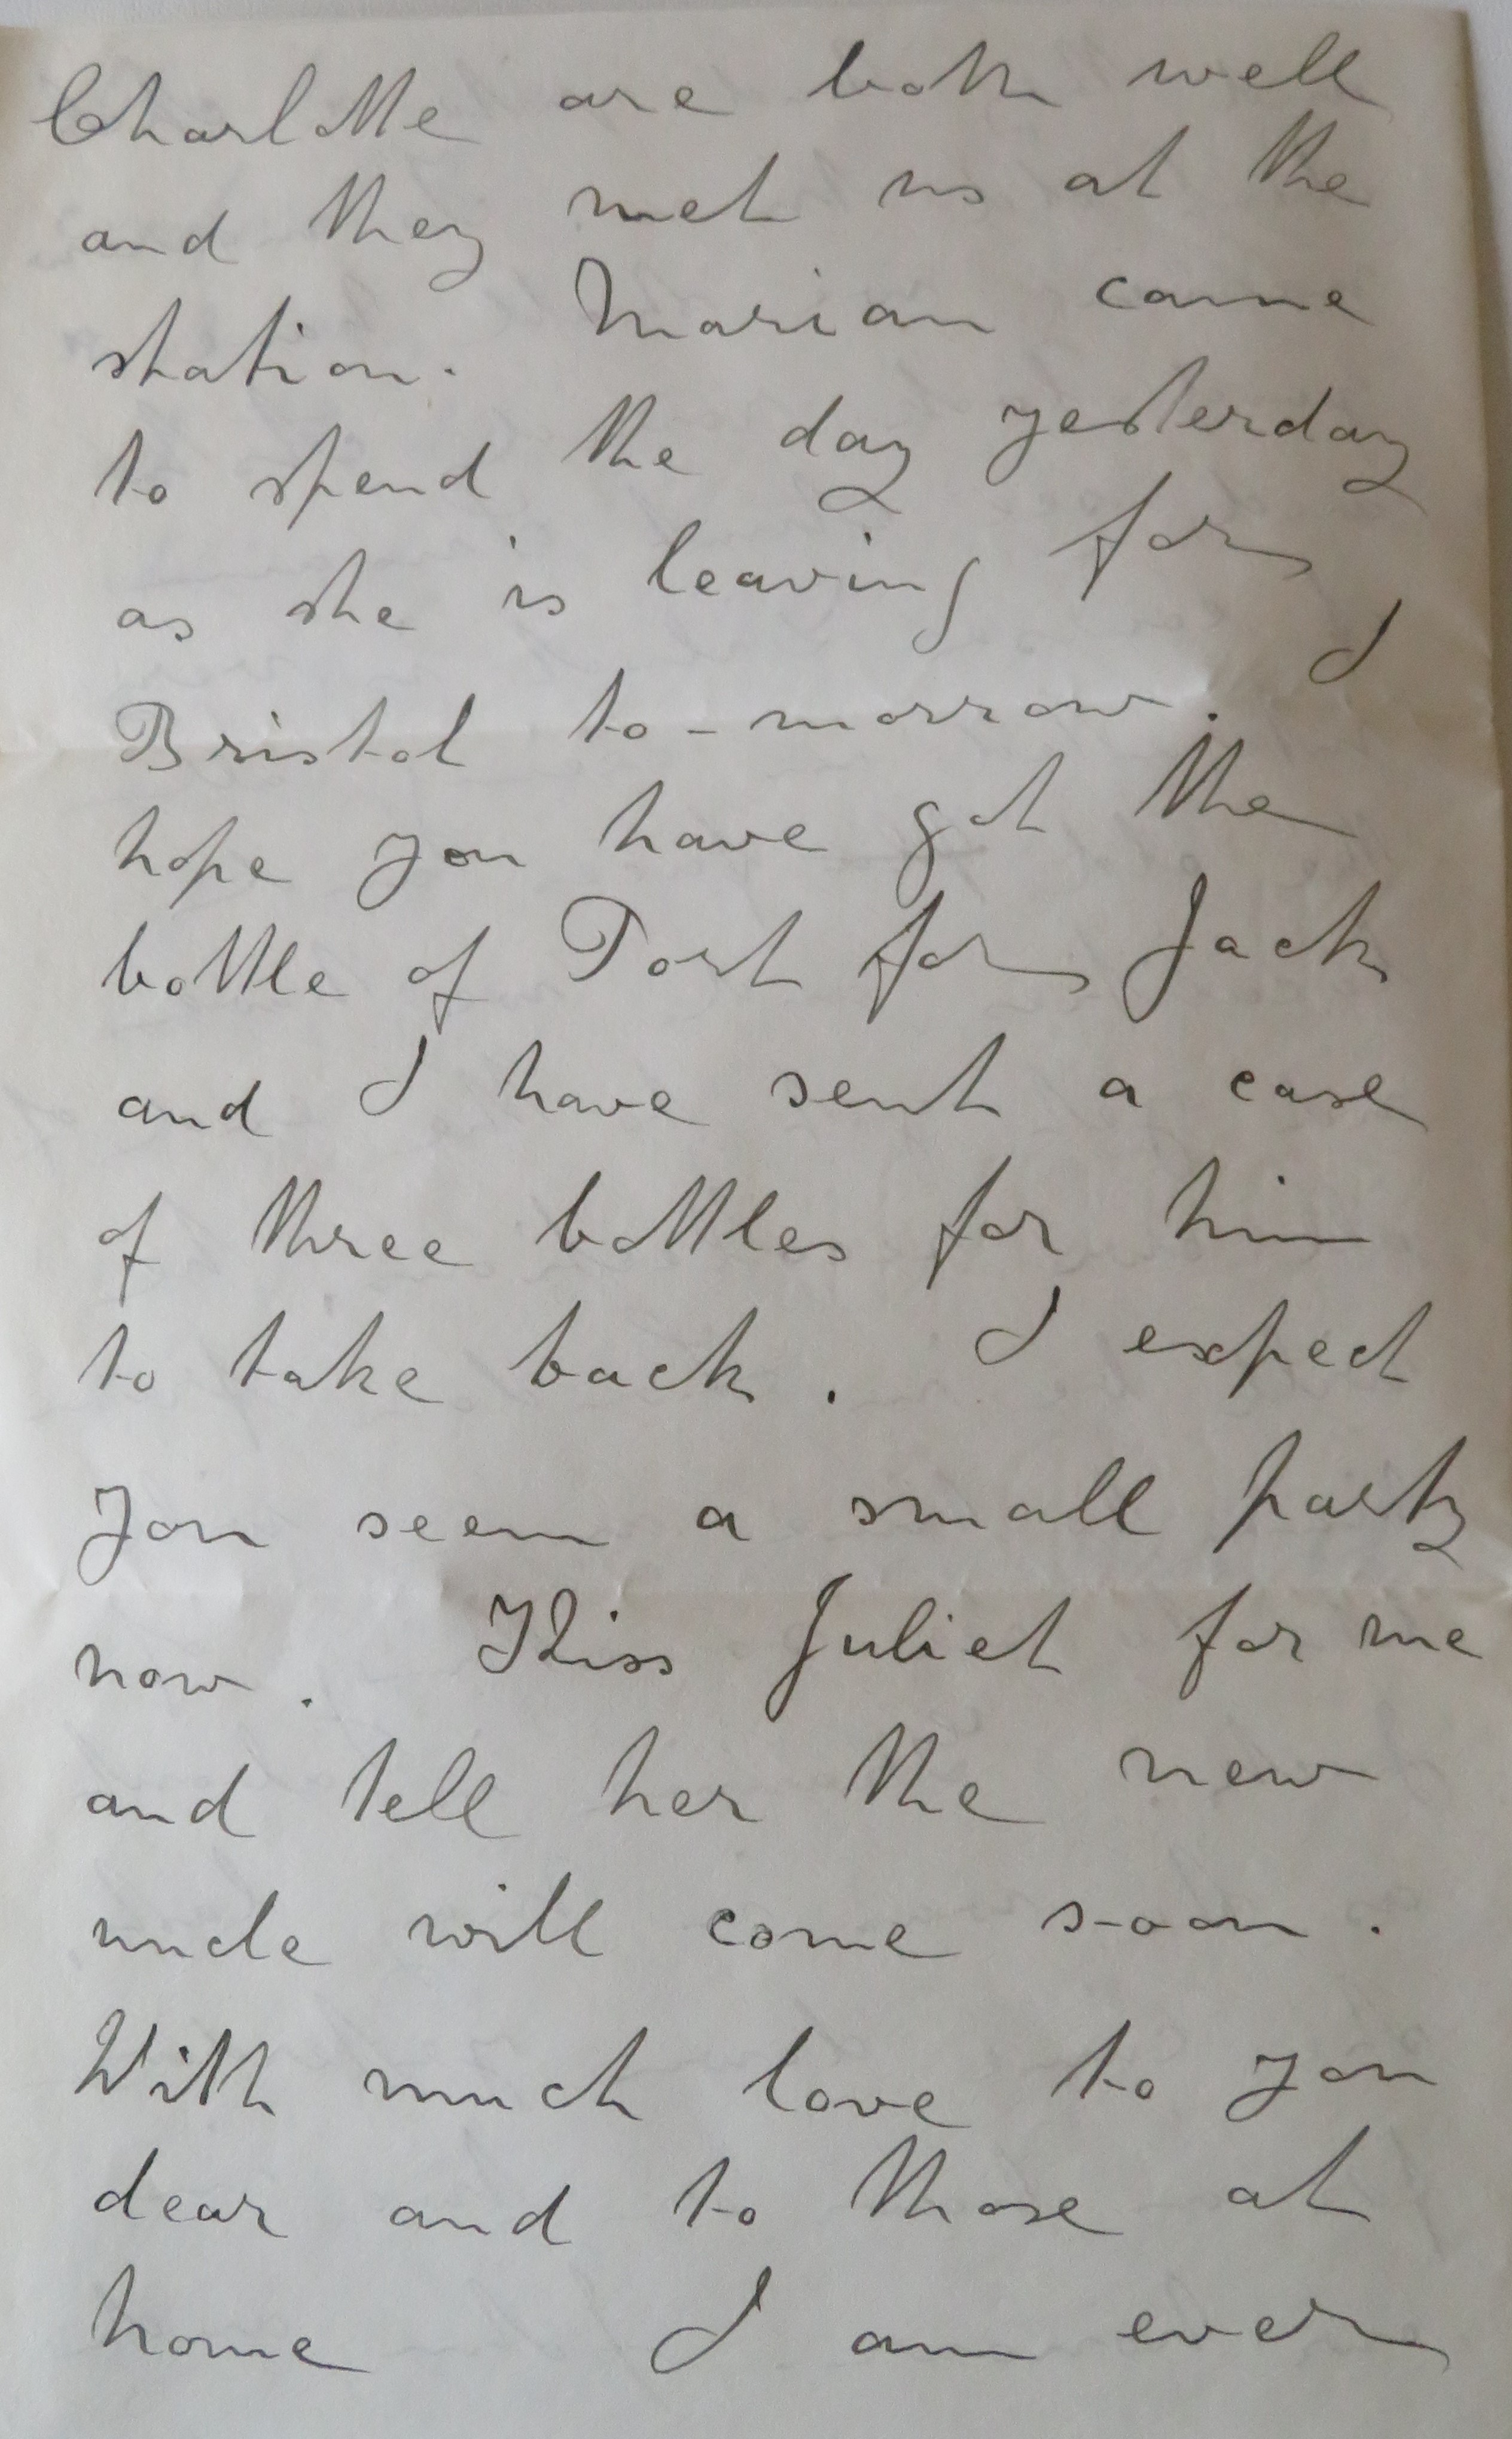 Charlotte are both well
and they met us at the
station. Marian came
to spend the day yesterday
as she is leaving for
Bristol to-morrow. I
hope you have got the
bottle of Port for Jack
and I have sent a case
of three bottles for him
to take back. I expect
you seem a small party
now. Kiss Juliet for me
and tell her the new
uncle will come soon.
With much love to you
dear and to those at
home I am ever